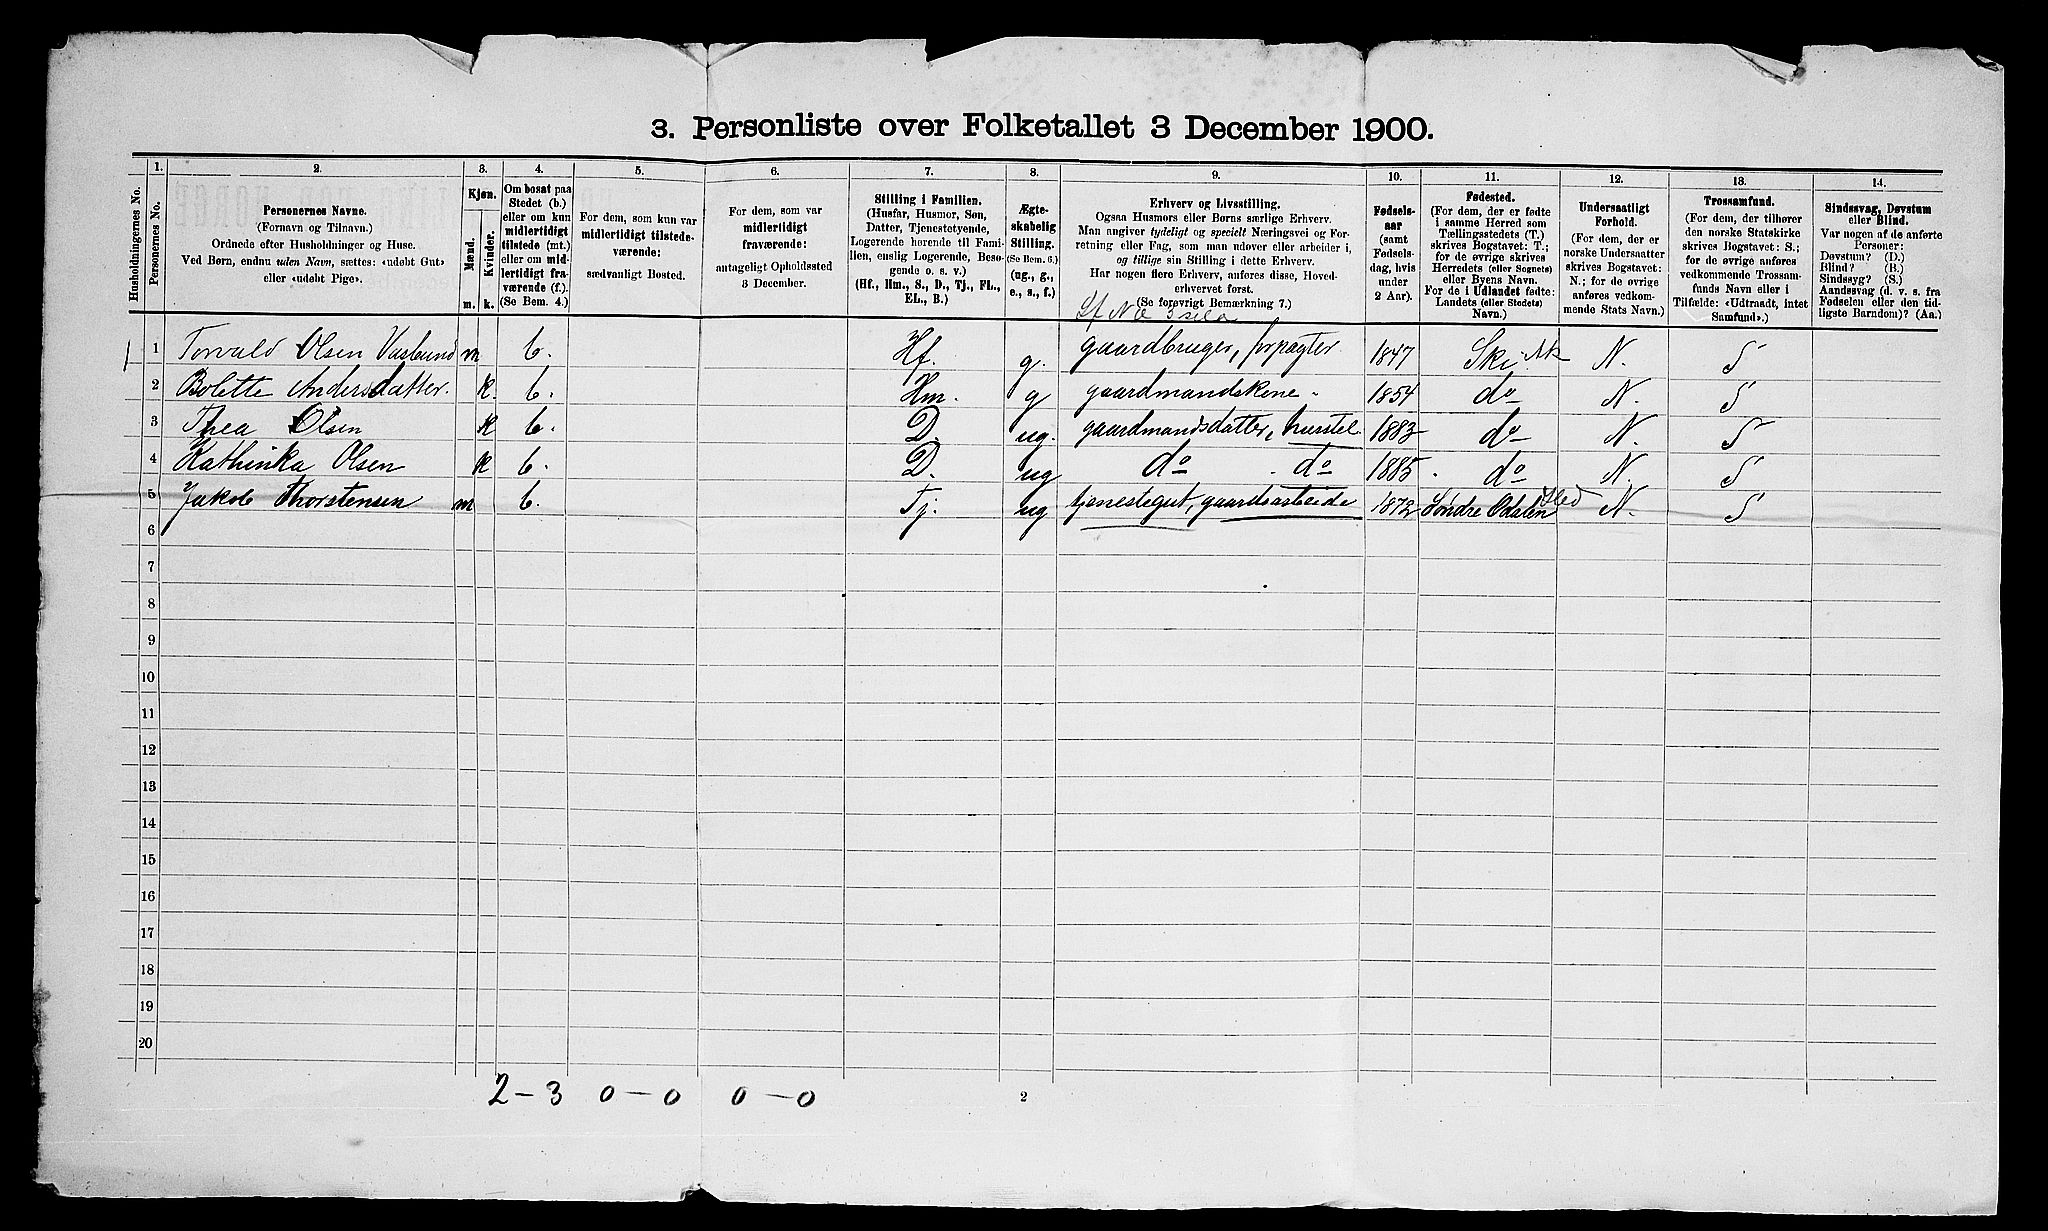 3. Personliste over Folketallet 3 December 1900.
Husholdningernes No.
1. Personernes No.
2. Personernes Navne.
(Fornavn og Tilnavn.)
Ordnede efter Husholdninger og Huse.
Ved Børn, endnu uden Navn, sættes: «udøbt Gut»
eller «udøbt Pige».
3. Kjøn.
Mænd. m.
Kvinder. k.
4. Om bosat paa
Stedet (b.)
eller om kun
midlertidigt
tilstede (mt.)
eller om mid-
lertidigt fra-
værende (f.).
(Se Bem. 4.)
5. For dem, som kun var
midlertidigt tilstede-
værende:
sædvanligt Bosted.
6. For dem, som var
midlertidigt
fraværende:
antageligt Opholdssted
3 December.
7. Stilling i Familien.
(Husfar, Husmor, Søn,
Datter, Tjenestetyende,
Logerende hørende til Fami-
lien, enslig Logerende, Besø-
gende o. s. v.)
(Hf., Hm., S., D., Tj., FL.,
EL., B.)
8. Ægte-
skabelig
Stilling.
(Se Bem. 6.)
(ug., g.,
e., s., f.)
9. Erhverv og Livsstilling.
Ogsaa Husmors eller Børns særlige Erhverv.
Man angiver tydeligt og specielt Næringsvei og For-
retning eller Fag, som man udøver eller arbeider i,
og tillige sin Stilling i dette Erhverv.
Har nogen flere Erhverv, anføres disse, Hoved-
erhvervet først.
(Se forøvrigt Bemærkning 7.)
10. Fødsels-
aar
(samt
Fødsels-
dag, hvis
under
2 Aar).
11. Fødested.
(For dem, der er fødte
i samme Herred som
Tællingsstedets (T.)
skrives Bogstavet: T.;
for de øvrige skrives
Herredets (eller Sognets)
eller Byens Navn.
For de i Udlandet fødte:
Landets (eller Stedets)
Navn.)
12. Undersaatligt
Forhold.
(For dem, der er
norske Undersaatter
skrives Bogstavet:
N.; for de øvrige
anføres vedkom-
mende Stats Navn.)
13. Trossamfund.
(For dem, der tilhører
den norske Statskirke
skrives Bogstavet: S.;
for de øvrige anføres
vedkommende Trossam-
funds Navn eller i
Tilfælde: «Udtraadt, intet
Samfund».)
14. Sindssvag, Døvstum
eller Blind.
Var nogen af de anførte
Personer:
Døvstum? (D.)
Blind? (B.)
Sindssyg? (S.)
Aandssvag (d. v. s. fra
Fødselen eller den tid-
ligste Barndom)? (Aa.)
1 1 Torvald Olsen m b. Hf. g. gaardbruger, forpagter 1847 Ski Ak N. S
2 Bolette Andersdatter. k. b. Hm. g gaardmandskone 1854 do N. S
3 Thea Olsen k b. D. ug. gaardmandsdatter, husstel 1883 do N. S
4 Kathinka Olsen k b. D. ug do do 1885 do N. S
5 Jakob Thorstensen m b. Tj. ug tjenestegut, gaardsarbeide 1872 Søndre Odalen Hed N. S
6
7
8
9
10
11
12
13
14
15
16
17
18
19
20
2-3 0-0 0-0
2